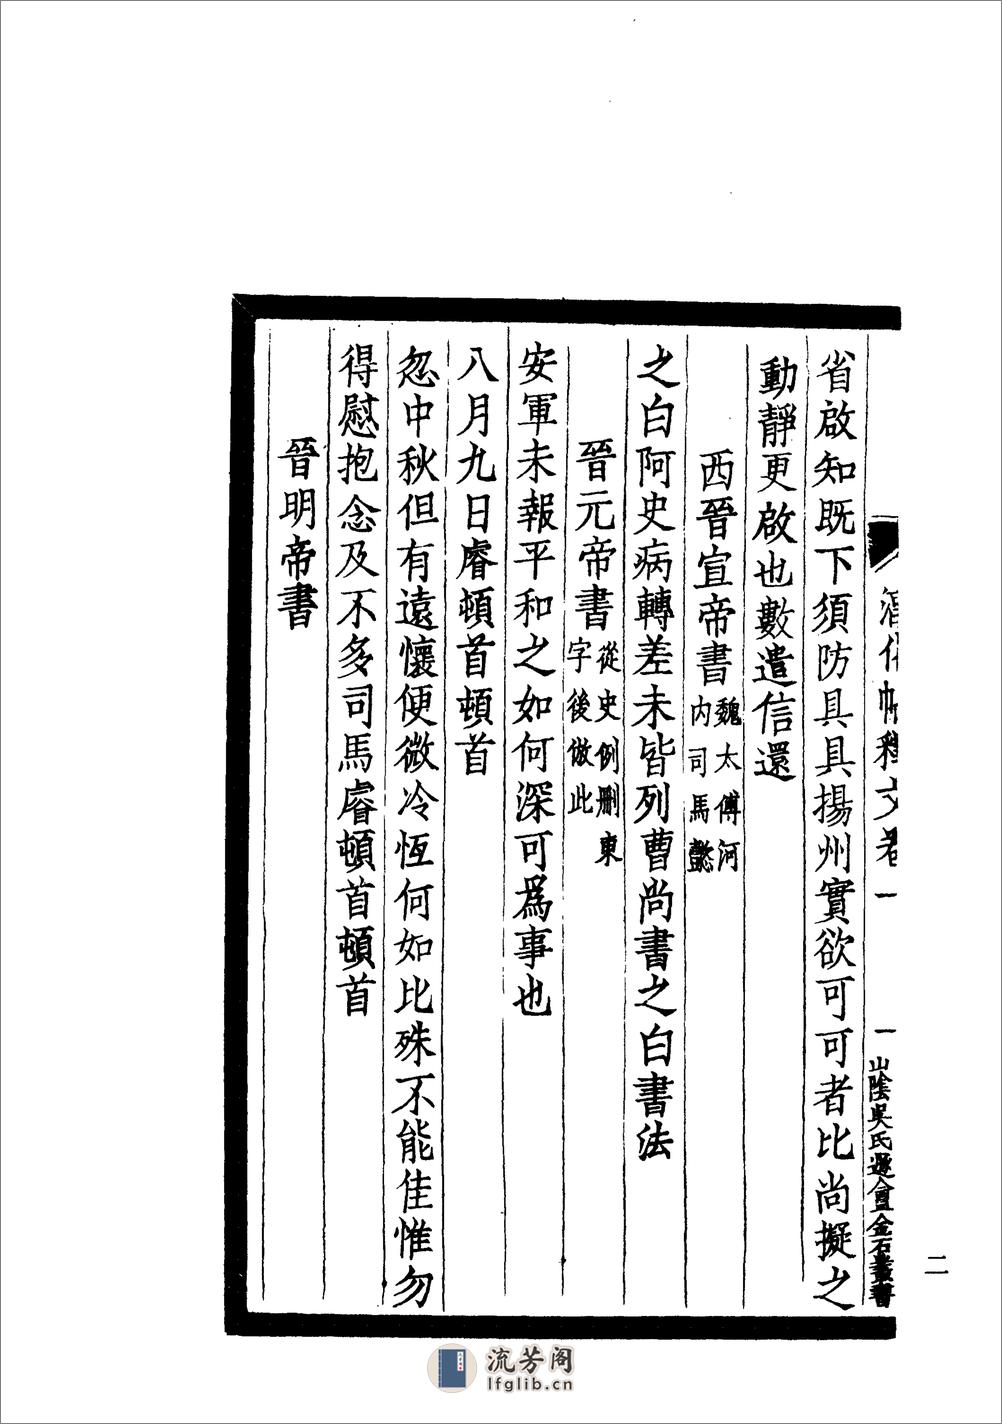 淳化帖釋文卷一
一
山陰吳氏遯盦金石叢書
省啟知既下須防具具揚州實欲可可者比尚擬之
動靜更啟也數遣信還
西晉宣帝書 魏太傅河
内司馬懿
之白阿史病轉差未皆列曹尚書之白書法
晉元帝書 從史例刪東
字後倣此
安軍未報平和之如何深可為事也
八月九日睿頓首頓首
忽中秋但有遠懷便微冷恆何如比殊不能佳惟勿
得慰抱念及不多司馬睿頓首頓首
晉明帝書
二
流芳阁
lfglib.cn